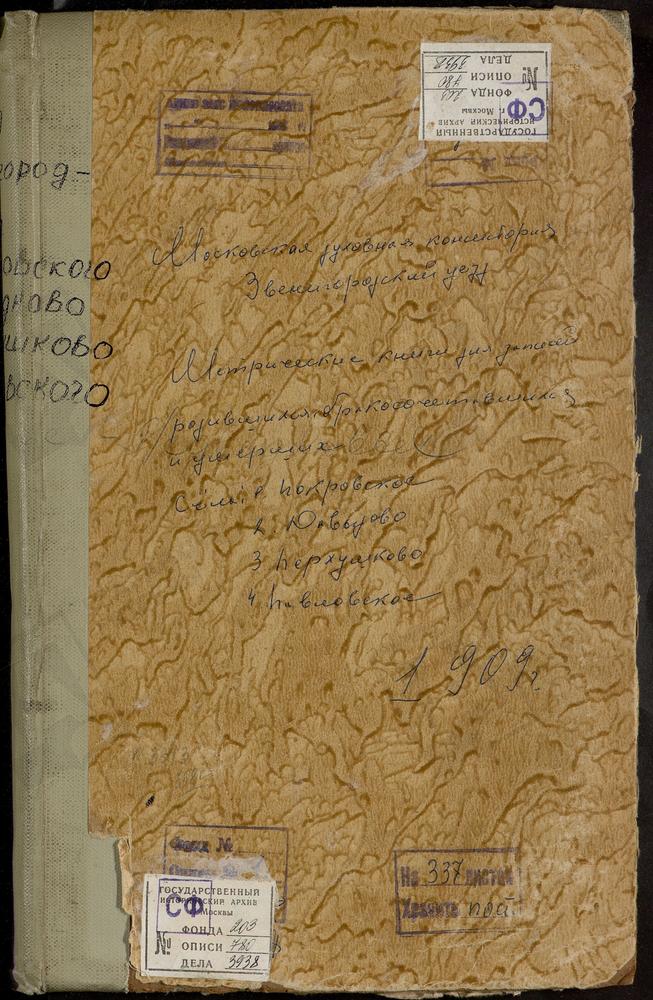 ГОСУДАРСТВЕННЫЙ
ИСТОРИЧЕСКИЙ АРХИВ
г. Москвы
СФ
ФОНДА 203
№ ОПИСИ 780
ДЕЛА 3938
ород-
овского
шково
вского
Московская духовная консистория
Звенигородский уезд
Метрические книги для записей
родившихся, бракосочетавшихся
и умерших
Сёла: 1. Покровское
2. Давыдово
3 Перхушково
4 Павловское
1909г.
Фонд №
На 337 листах
Хранить пост.
ГОСУДАРСТВЕННЫЙ
ИСТОРИЧЕСКИЙ АРХИВ
г. Москвы
СФ
ФОНДА 203
№ ОПИСИ 780
ДЕЛА 3938